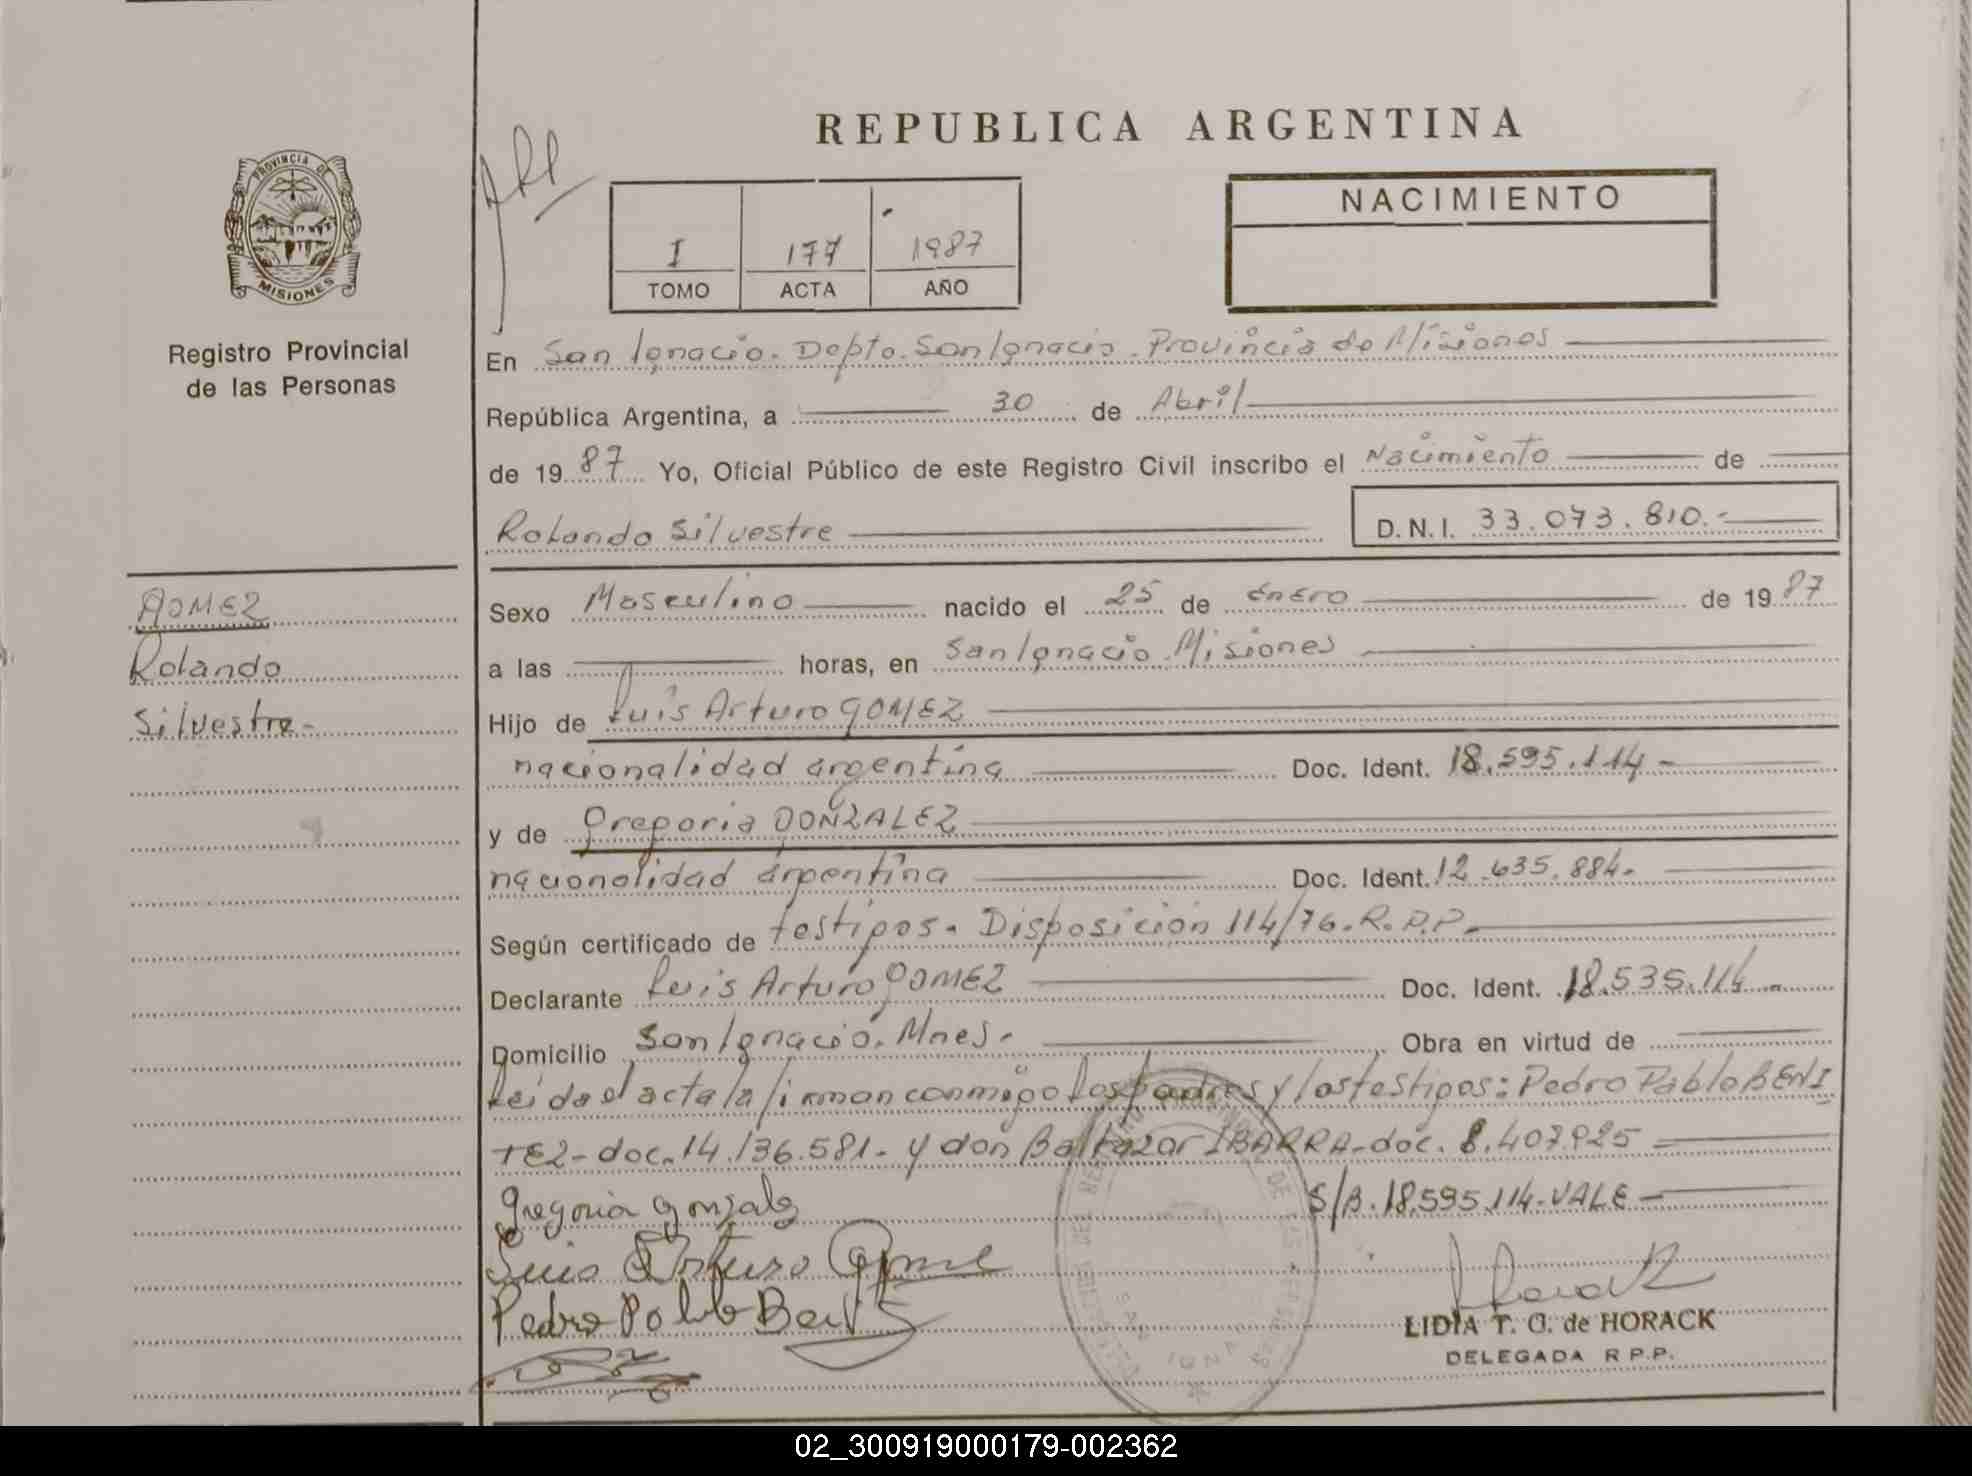 REPUBLICA ARGENTINA
PROVINCIA DE
MISIONES
Registro Provincial
de las Personas
I 177 1987
TOMO ACTA AÑO
NACIMIENTO
En San Ignacio. Depto. San Ignacio. Provincia de Misiones
República Argentina, a 30 de Abril
de 19 87 Yo, Oficial Público de este Registro Civil inscribo el Nacimiento de
Rolando Silvestre D.N.I. 33.073.810.-
GOMEZ
Rolando
Silvestre-
Sexo Masculino nacido el 25 de Enero de 19 87
a las horas, en San Ignacio. Misiones
Hijo de Luis Arturo GOMEZ
nacionalidad argentina Doc. Ident. 18.595.114-
y de Gregoria GONZALEZ
nacionalidad argentina Doc. Ident. 12.635.884-
Según certificado de testigos. Disposición 114/76. R.P.P.
Declarante Luis Arturo GOMEZ Doc. Ident. 18.535.114.-
Domicilio San Ignacio. Mnes. Obra en virtud de
Leída el acta la firman conmigo los padres y los testigos: Pedro Pablo BENI
TEZ-doc. 14.136.581. y don Baltazar IBARRA-doc. 8.407.925
S/B. 18.595.114-VALE-
Gregoria Gonzalez
Luis Arturo Gome
Pedro Pablo
LIDIA T. O. de HORACK
DELEGADA R.P.P.
02_300919000179-002362